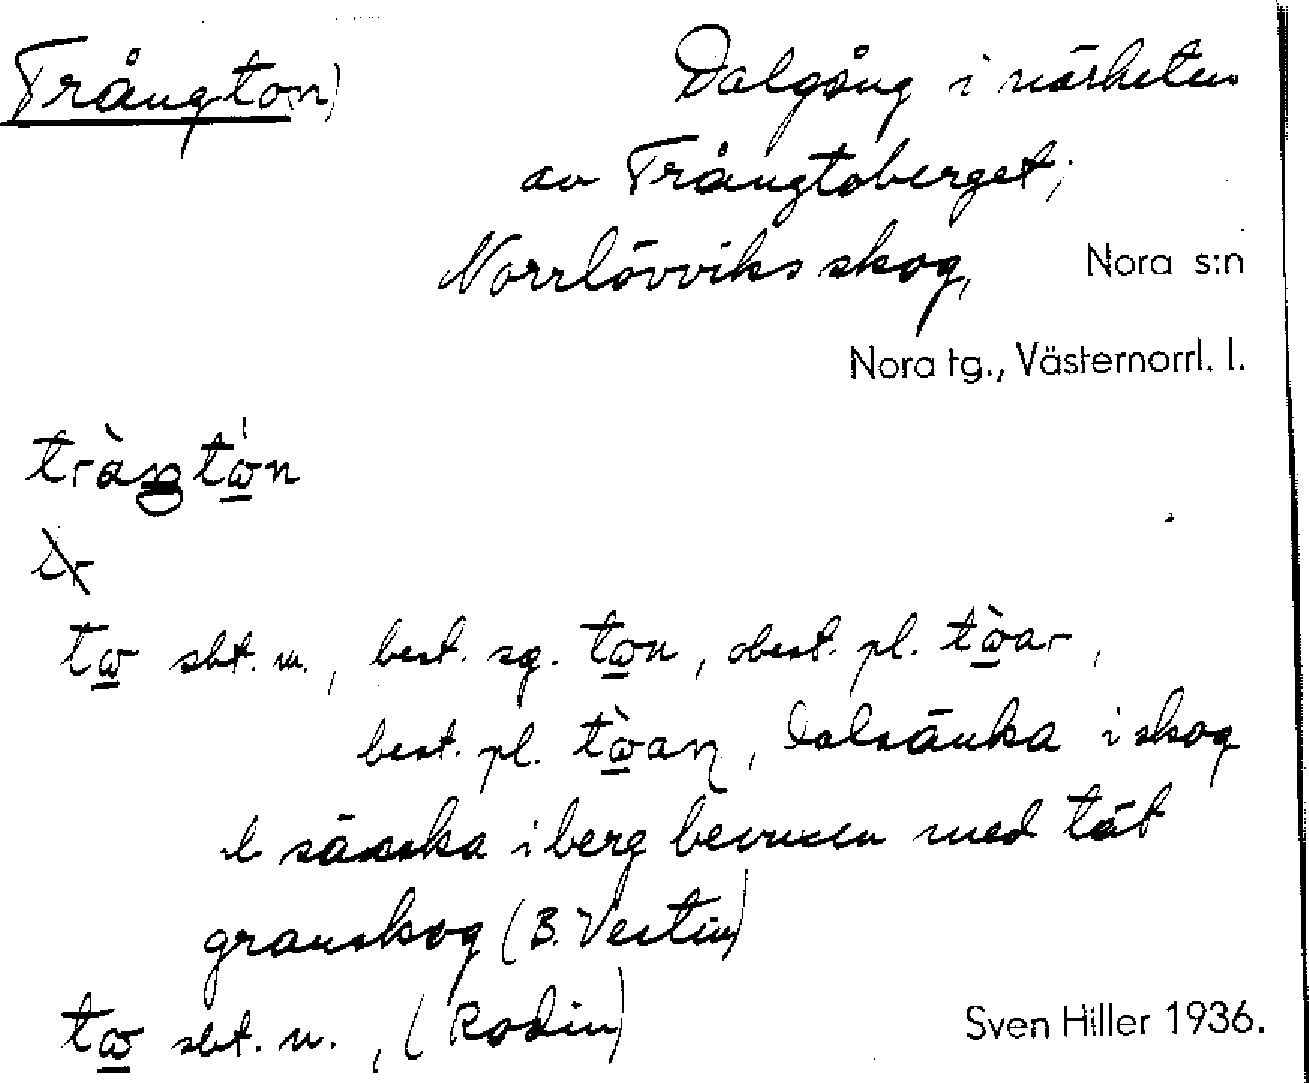 Trångto(n)
Dalgång i närheten
av Trångtoberget;
Norrlövviks skog, Nora s:n
Nora tg., Västernorrl. l.
to̲ sbt. m., best. sg. to̲n, obest. pl. tò̲ar,
best. pl. tò̲an, dalsänka i skog
l. sänka i berg bevuxen med tät
granskog (B. Vestin)
to̲ sbt. n., (Rodin)
Sven Hiller 1936.